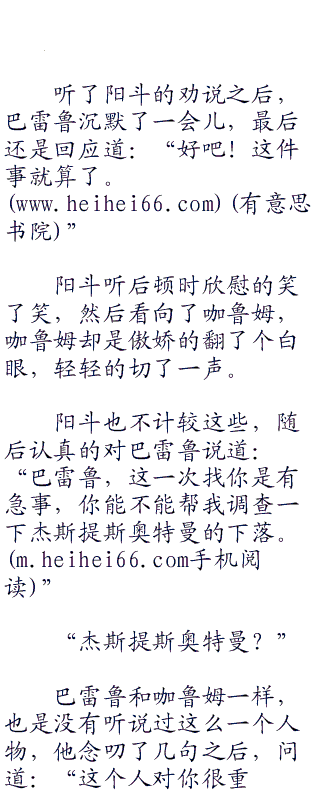 听了阳斗的劝说之后，
巴雷鲁沉默了一会儿，最后
还是回应道：“好吧！这件
事就算了。
(www.heihei66.com)(有意思
书院)”
阳斗听后顿时欣慰的笑
了笑，然后看向了咖鲁姆，
咖鲁姆却是傲娇的翻了个白
眼，轻轻的切了一声。
阳斗也不计较这些，随
后认真的对巴雷鲁说道：
“巴雷鲁，这一次找你是有
急事，你能不能帮我调查一
下杰斯提斯奥特曼的下落。
(m.heihei66.com手机阅
读)”
“杰斯提斯奥特曼？”
巴雷鲁和咖鲁姆一样，
也是没有听说过这么一个人
物，他念叨了几句之后，问
道：“这个人对你很重